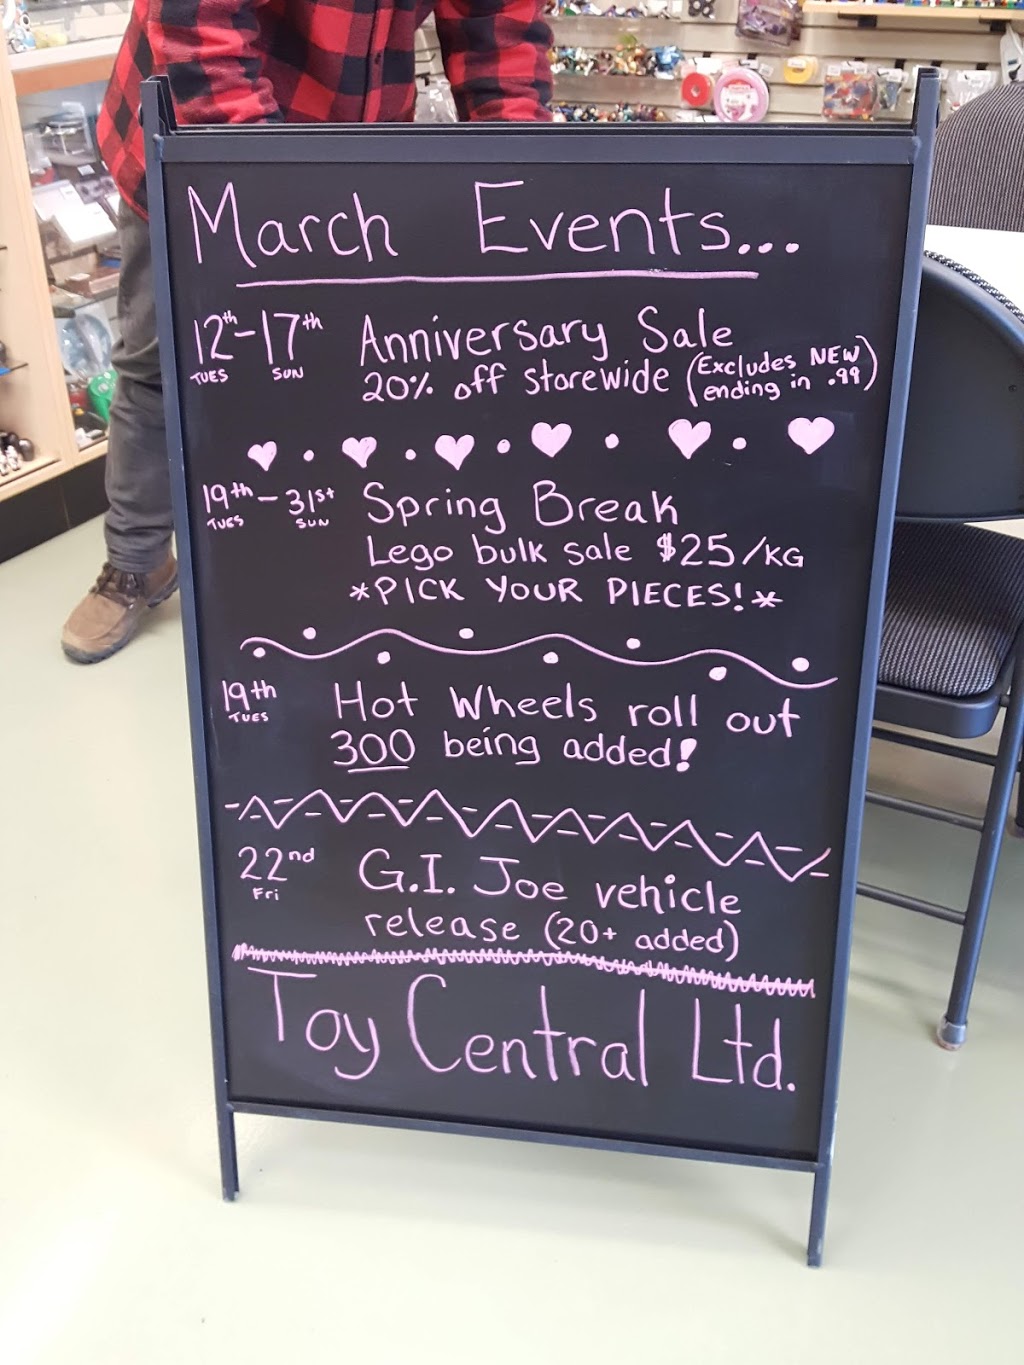 March Events...
12th - 17th Anniversary Sale
TUES SUN 20% off storewide (Excludes NEW ending in .99)
19th - 31st Spring Break
TUES SUN
Lego bulk sale $25/KG
*PICK YOUR PIECES!*
19th Hot Wheels roll out
TUES
300 being added!
22nd G.I. Joe vehicle
Fri
release (20+ added)
Toy Central Ltd.